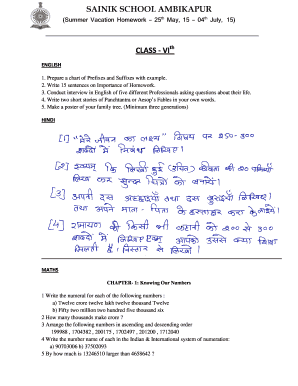 SAINIK SCHOOL AMBIKAPUR
(Summer Vacation Homework – 25th May, 15 – 04th July, 15)
CLASS - VIth
ENGLISH
1. Prepare a chart of Prefixes and Suffixes with example.
2. Write 15 sentences on Importance of Homework.
3. Conduct interview in English of five different Professionals asking questions about their life.
4. Write two short stories of Panchtantra or Aesop's Fables in your own words.
5. Make a poster of your family tree. (Minimum three generations)
HINDI
[1] "मेरे जीवन का लक्ष्य" विषय पर 250-300
शब्दों में निबंध लिखिए।
[2] कि किसी हुई कविता की 20 पंक्तियाँ
लिख कर सुन्दर चित्रों को बनायें।
[3] अपनी दस अच्छाइयाँ तथा दस बुराइयाँ लिखिए।
तथा अपने माता-पिता के हस्ताक्षर करा के लाईये।
[4] रामायण की किसी भी कहानी को 200 से 300
शब्दों में लिखिए एवम् आपको उससे क्या शिक्षा
मिलती है। विस्तार से लिखो।
MATHS
CHAPTER- 1: Knowing Our Numbers
1 Write the numeral for each of the following numbers :
a) Twelve crore twelve lakh twelve thousand Twelve
b) Fifty two million two hundred five thousand six
2 How many thousands make crore ?
3 Arrange the following numbers in ascending and descending order
199988 , 1704382, 200175 , 1702497 , 201200 , 1712040
4 Write the number name of each in the Indian & International system of numeration:
a) 90703006 b) 37502093
5 By how much is 13246510 larger than 4658642 ?